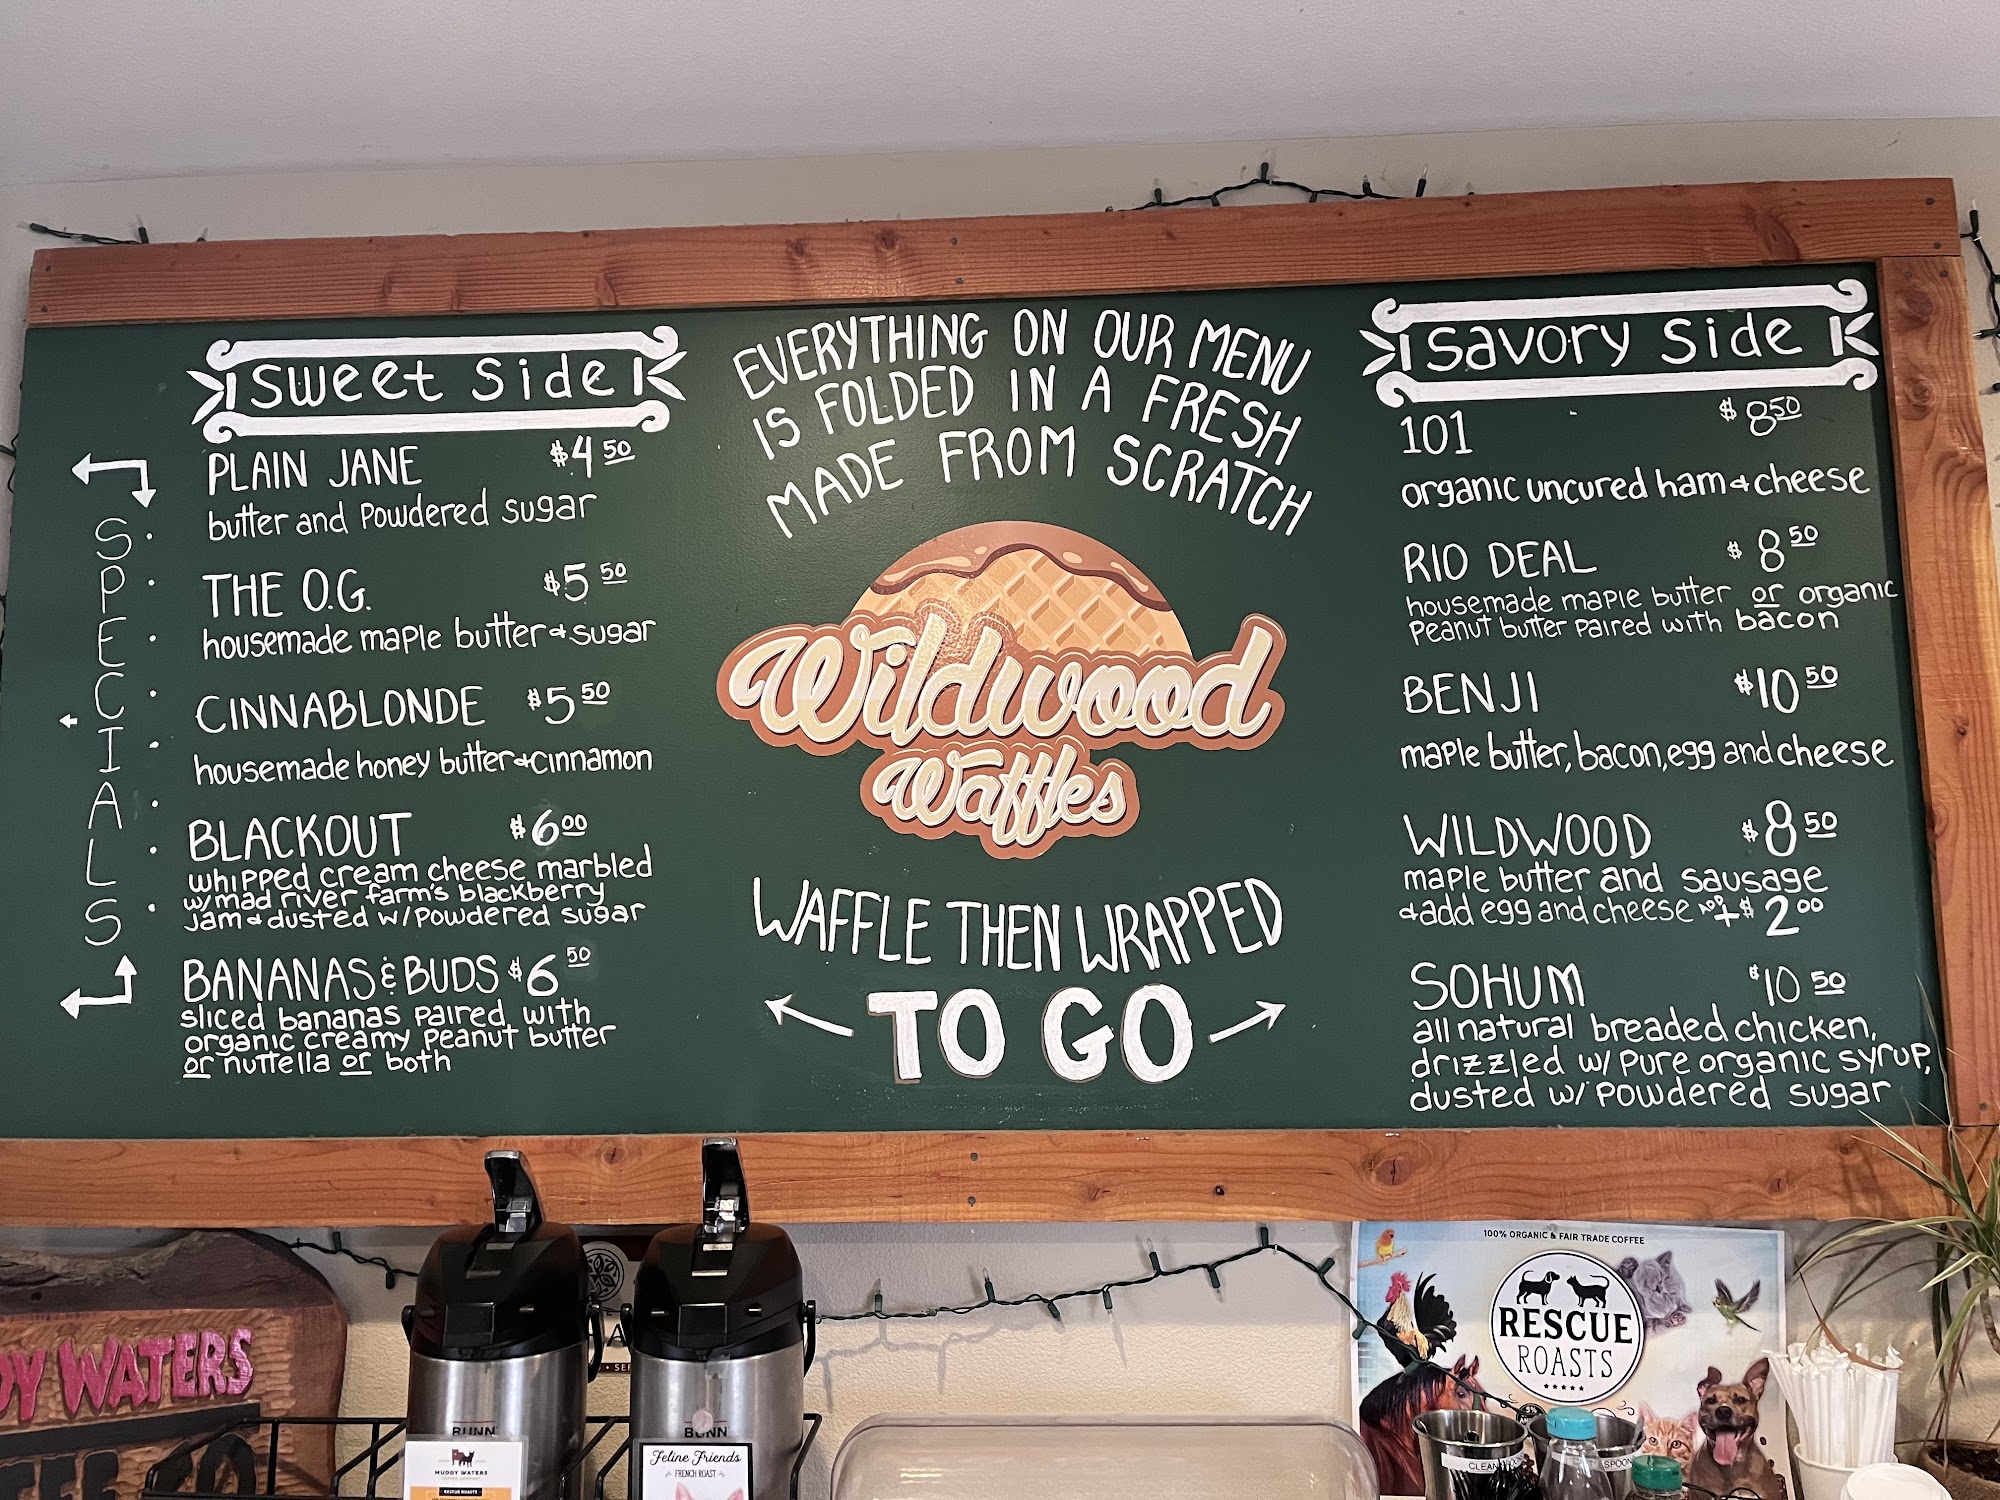 Sweet Side
PLAIN JANE $4 50
butter and powdered sugar
THE O.G. $5 50
housemade maple butter & sugar
CINNABLONDE $5 50
housemade honey butter & cinnamon
BLACKOUT $6 00
whipped cream cheese marbled
w/ mad river farm's blackberry
jam & dusted w/ powdered sugar
BANANAS & BUDS $6 50
sliced bananas paired with
organic creamy peanut butter
or nuttella or both
SPECIALS
EVERYTHING ON OUR MENU
IS FOLDED IN A FRESH
MADE FROM SCRATCH
Wildwood
Waffles
WAFFLE THEN WRAPPED
TO GO
Savory Side
101 $8 50
organic uncured ham & cheese
RIO DEAL $8 50
housemade maple butter or organic
peanut butter paired with bacon
BENJI $10 50
maple butter, bacon, egg and cheese
WILDWOOD $8 50
maple butter and sausage
& add egg and cheese ADD +$2 00
SOHUM $10 50
all natural breaded chicken,
drizzled w/ pure organic syrup,
dusted w/ powdered sugar
WATERS
BUNN
MUDDY WATERS
RESCUE ROASTS
BUNN
Feline Friends
FRENCH ROAST
100% ORGANIC & FAIR TRADE COFFEE
RESCUE
ROASTS
CLEAN
SPOON